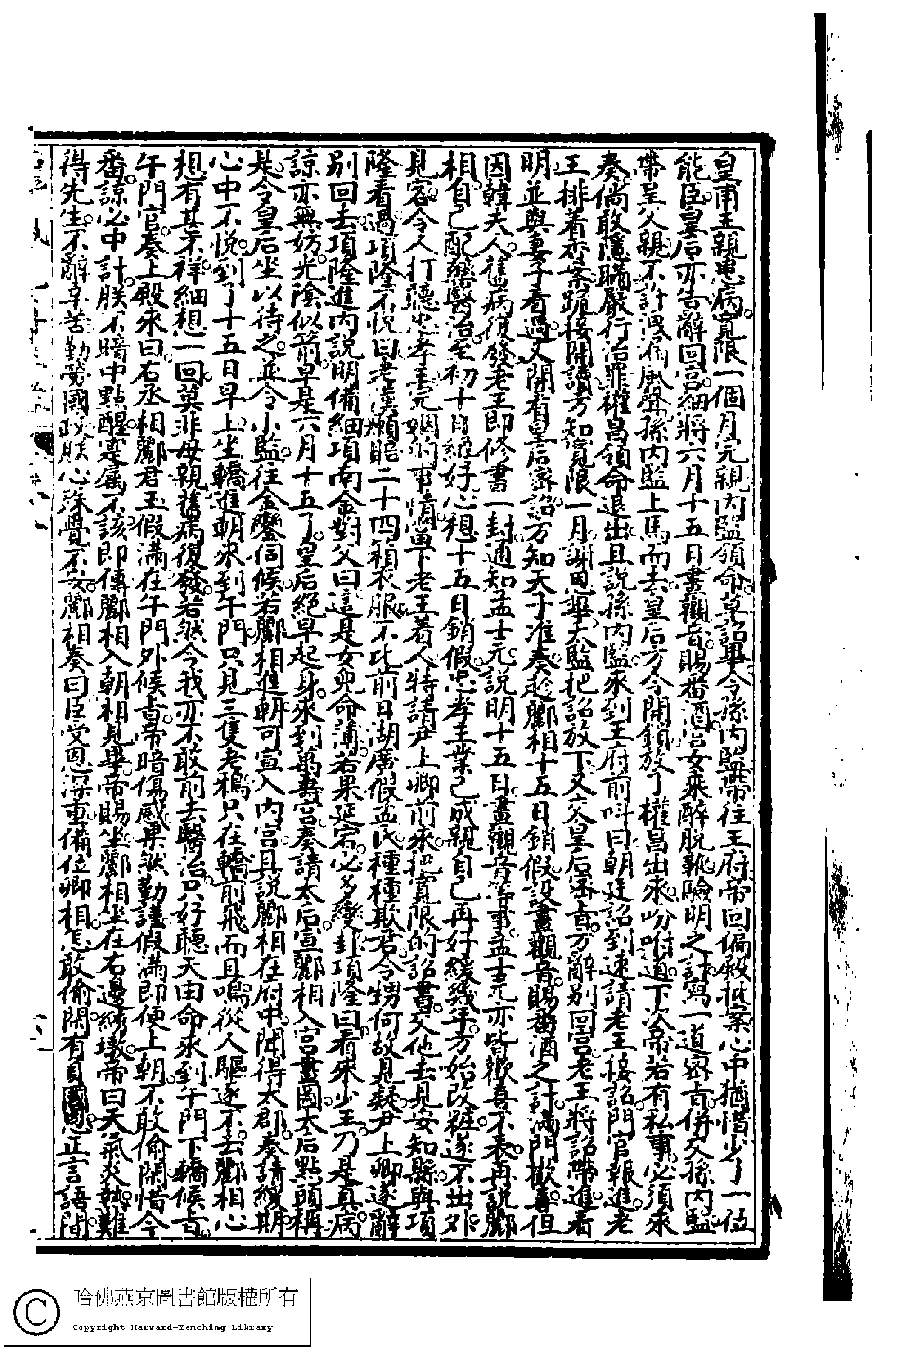 皇甫王親患病寬限一個月完親內監領命草詔畢令孫內監帶往王府帝回偏殿批案心中猶惜少了一位
能臣皇后亦告辭回宮細將六月十五日畫觀音賜番酒宮女乘醉脫靴驗明之計寫一道密旨併交孫內監
帶呈父親不許洩漏風聲孫內監上馬而去皇后方令開鎖放了權昌出來吩咐道下次帝若有私事必須來
奏倘敢隱瞞嚴行治罪權昌領命退出且說孫內監來到王府前叫曰朝廷詔到速請老王接詔門官報進老
王排着香案跪接開讀方知寬限一月謝恩畢太監把詔放下又交皇后密旨方辭別回宮老王將詔帶進看
明並與妻子看過又開看皇后密詔方知天子准奏趁酈相十五日銷假設畫觀音賜番酒之計滿門歡喜但
因韓夫人舊病復發老王即修書一封通知孟士元說明十五日畫觀音等事孟士元亦皆歡喜不表再說酈
相自己配藥醫治至初十日纔好心想十五日銷假忠孝王業已成親自己再好緩幾年方始改粧遂不出外
見客令人打聽忠孝王完姻的事情當下老王着人特請尹上卿前來把寬限的詔書交他去見安知縣與項
隆看過項隆不悅曰老漢願賠二十四箱衣服不比前日湖廣假孟氏種種欺君今甥何故見疑尹上卿遂辭
別回去項隆進內說明備細項南金對父曰這是女兒命薄若果延宕必多變卦項隆曰看來少王乃是真病
諒亦無妨光陰似箭早是六月十五了皇后絕早起身來到萬壽宮奏請太后宣酈相入宮畫圖太后點頭稱
是令皇后坐以待之並令小監往金鑾伺候若酈相進朝可宣入內宮且說酈相在府中聞得太郡奏請緩期
心中不悅到了十五日早上坐轎進朝來到午門只見三隻老鴉只在轎前飛而且鳴從人驅逐不去酈相心
想有甚不祥細想一回莫非母親舊病復發若然今我亦不敢前去醫治只好聽天由命來到午門下轎候旨
午門官奏上殿來曰右丞相酈君玉假滿在午門外候旨帝暗傷感果然勤謹假滿即便上朝不敢偷閒惜今
番諒必中計朕不暗中點醒寔屬不該即傳酈相入朝相見畢帝賜坐酈相坐在右邊綉墩帝曰天氣炎熱難
得先生不辭辛苦勤勞國政朕心殊覺不安酈相奏曰臣受恩深重備位卿相怎敢偷閒有負國恩正言語間
哈佛燕京圖書館版權所有
Copyright Harvard-Yenching Library